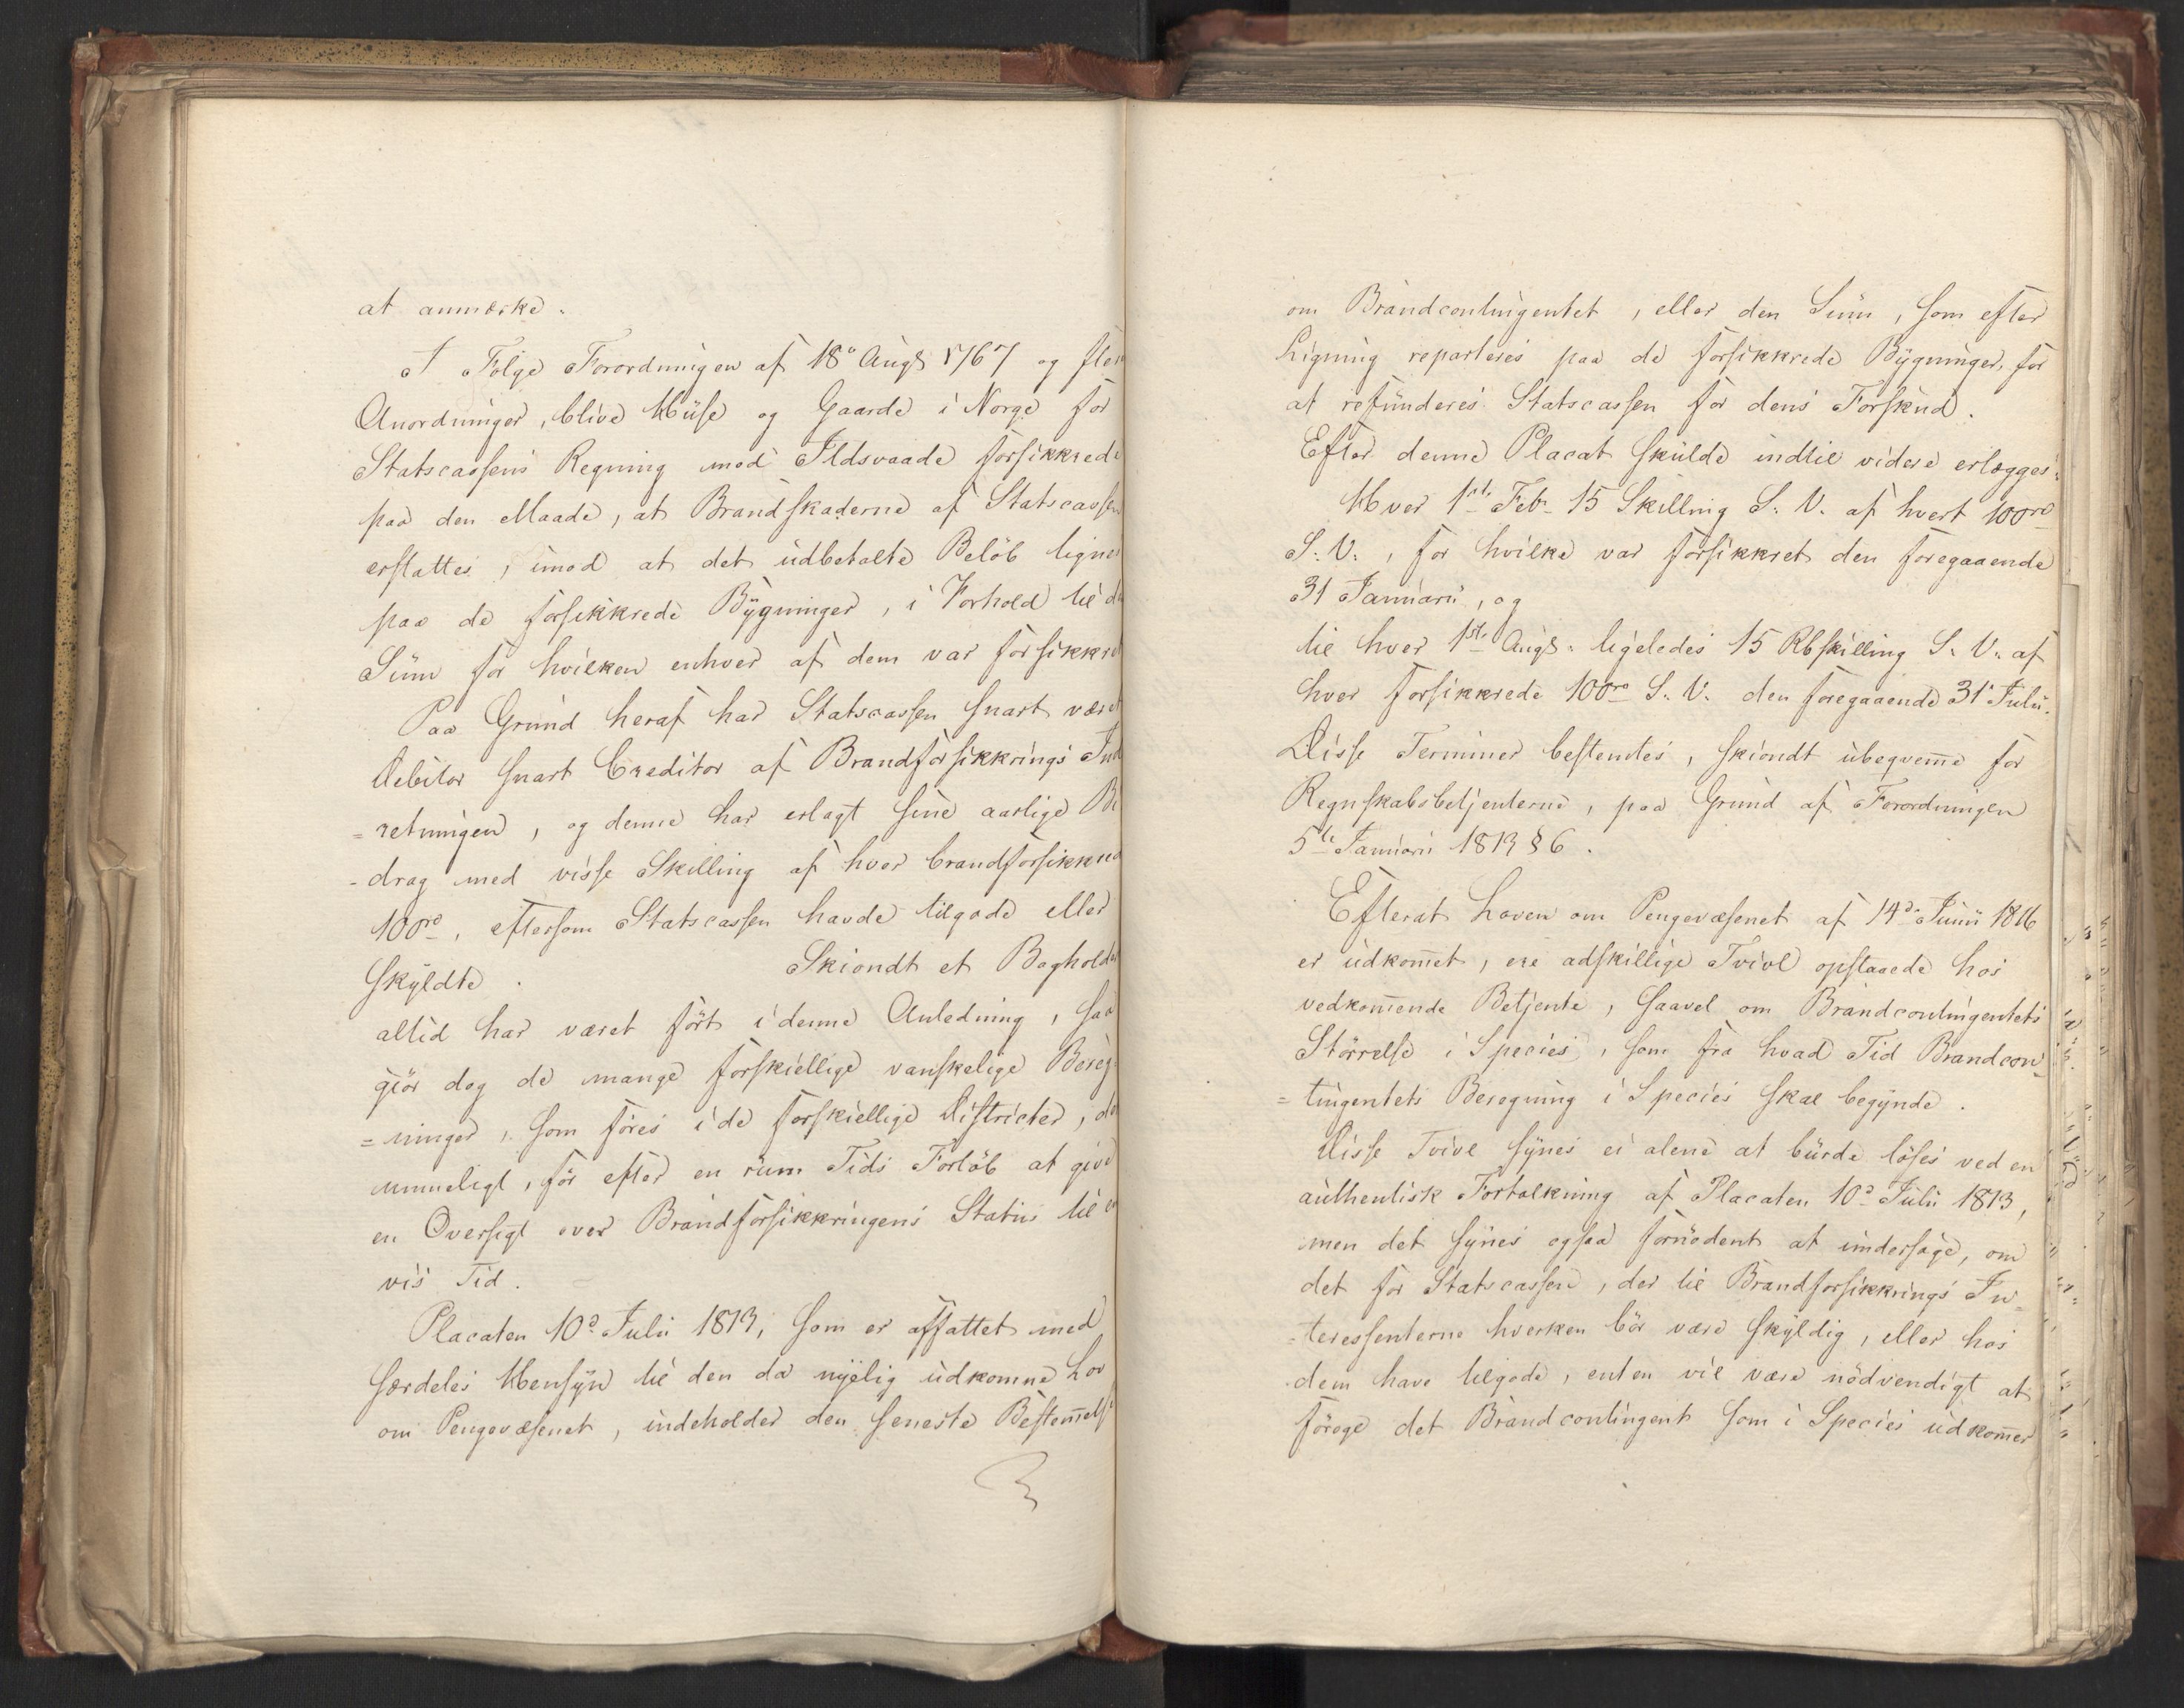 at anmærke.
I Følge Forordningen af 18de Augs 1767 og flere
Anordninger, blive Huse og Gaarde i Norge for
Statscassens Regning mod Ildsvaade forsikkrede
paa den Maade, at Brandskaderne af Statscassen
erstattes, imod at det udbetalte Beløb lignes
paa de forsikkrede Bygninger, i Forhold til den
Sum for hvilken enhver af dem var forsikkret
Paa Grund heraf har Statscassen snart været
Debitor snart Creditor af Brandforsikkrings Ind
=retningen, og denne har erlagt sine aarlige Bi
-drag med visse Skilling af hver brandforsikkred
100rd, eftersom Statscassen havde tilgode eller
skyldte. Skiondt et Bogholder
altid har været ført i denne Anledning, saa
giør dog de mange forskiellige vanskelige Bereg
=ninger, som føres i de forskiellige Districter, det
umueligt, før efter en rum Tids Forløb at give
en Oversigt over Brandforsikkringens Status til en
vis Tid.
Placaten 10de Julii 1813, som er affattet med
særdeles Hensyn til den da nyelig udkomne Lov
om Pengevæsenet, indeholder den seneste Bestem̄else
om Brandcontingentet, eller den Sum, som efter
Ligning reparteres paa de forsikkrede Bygninger, for
at refunderes Statscassen for dens Forskud.
Efter denne Placat skulde indtil videre erlægges:
Hver 1ste Febr 15 Skilling S. V. af hvert 100rd
S. V., for hvilke var forsikkret den foregaaende
31 Januarii, og
til hver 1ste Augs. ligeledes 15 Rbskilling S. V. af
hver forsikkrede 100rd S. V. den foregaaende 31 Julii.
Disse Terminer bestemtes, skiondt ubeqvem̄e for
Regnskabsbetjenterne, paa Grund af Forordningen
5te Januarii 1813 § 6.
Efterat Loven om Pengevæsenet af 14de Junii 1816
er udkom̄et, ere adskillige Tvivl opstaaede hos
vedkom̄ende Betjente, saavel om Brandcontingentets
Størrelse i Species, som fra hvad Tid Brandcon=
=tingentets Beregning i Species skal begynde.
Disse Tvivl synes ei alene at burde løses ved en
authentisk Fortolkning af Placaten 10de Julii 1813,
men det synes ogsaa fornødent at undersøge, om
det for Statscassen, der til Brandforsikkrings In=
=teressenterne hverken bør være skyldig, eller hos
dem have tilgode, enten vil være nødvendigt at
forøge det Brandcontingent som i Species udkom̄er